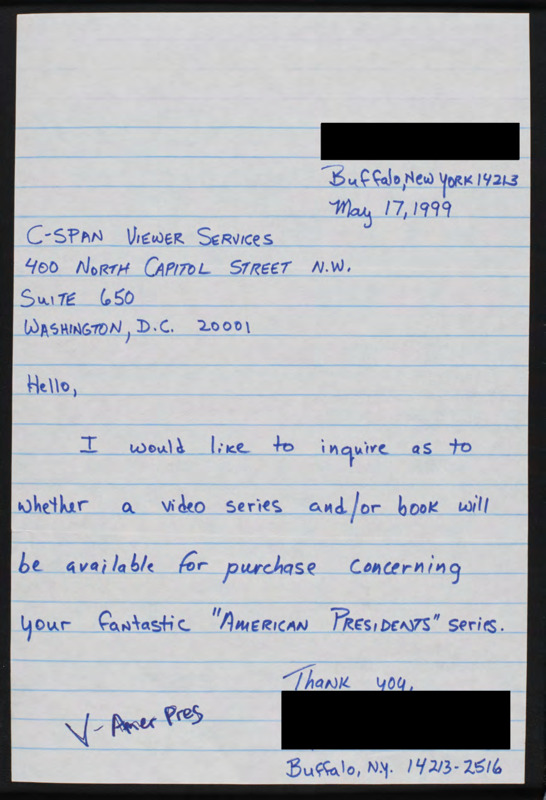 Buffalo, New York 14213
May 17, 1999
C-SPAN VIEWER SERVICES
400 NORTH CAPITOL STREET N.W.
SUITE 650
WASHINGTON, D.C. 20001
Hello,
I would like to inquire as to
whether a video series and/or book will
be available for purchase concerning
your fantastic "AMERICAN PRESIDENTS" series.
Thank you,
V- Amer Pres
Buffalo, N.Y. 14213-2516